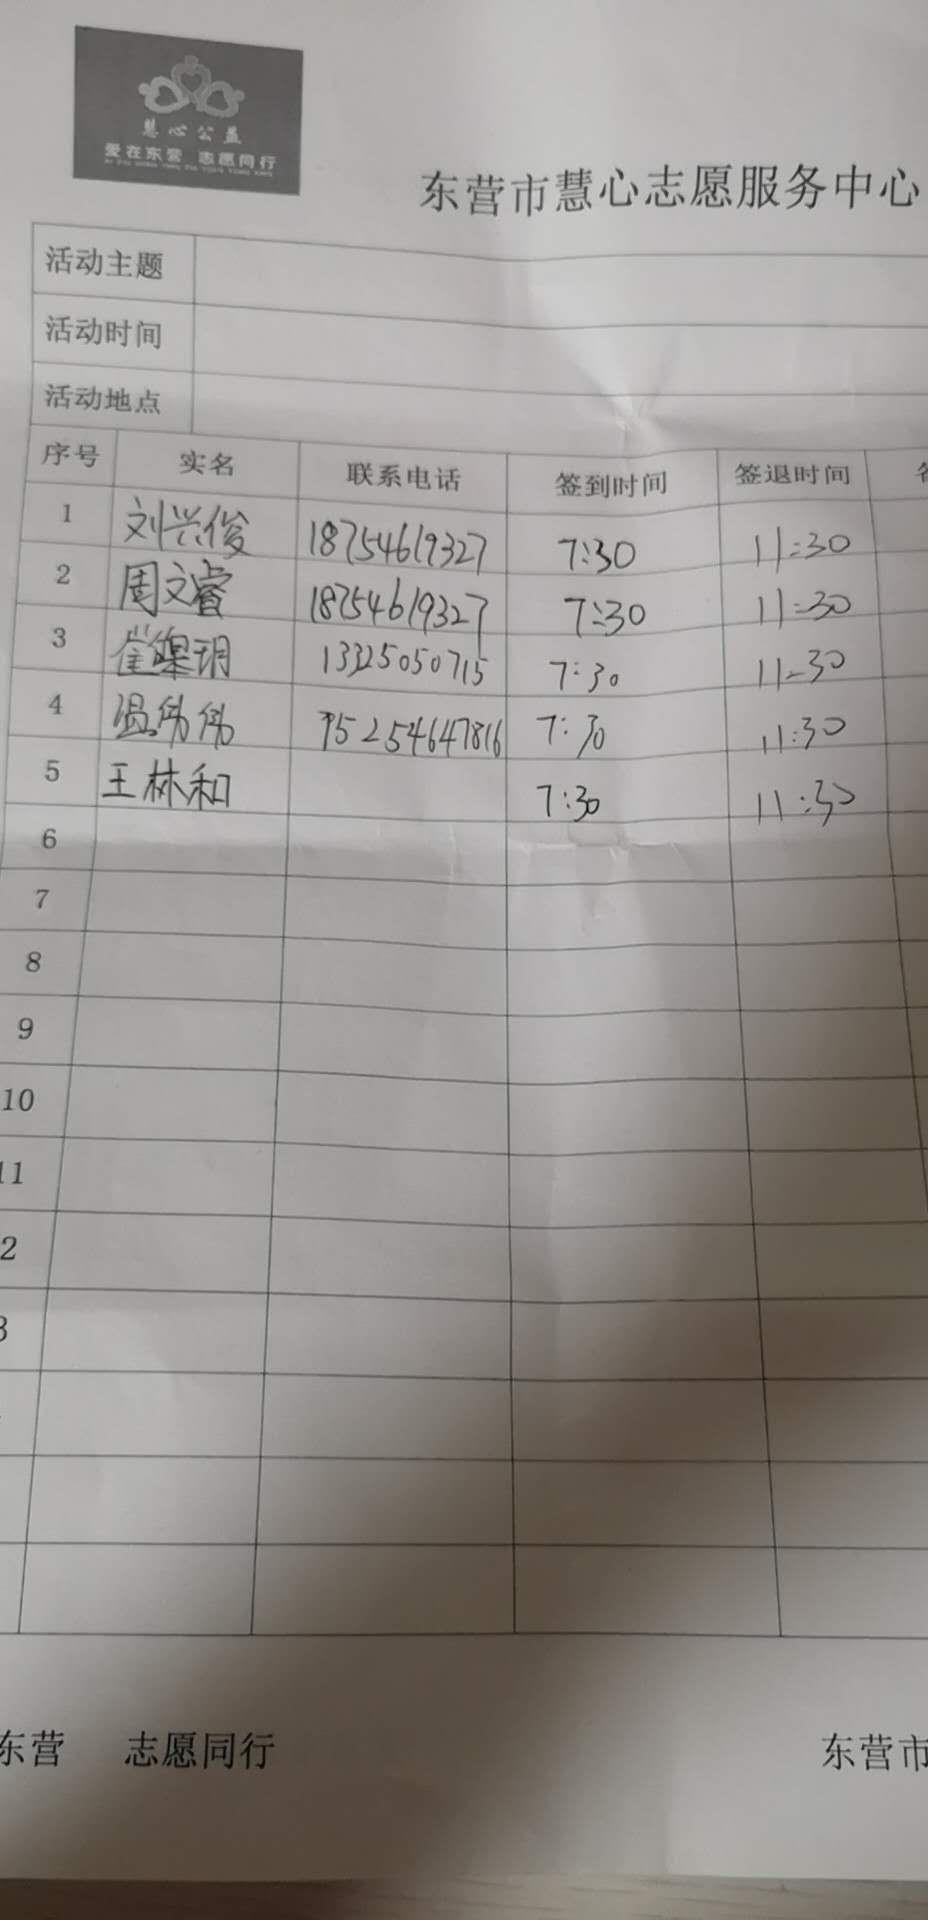 慧心公益
爱在东营 志愿同行
东营市慧心志愿服务中心
活动主题
活动时间
活动地点
序号 实名 联系电话 签到时间 签退时间
1 刘兴俊 18754619327 7:30 11:30
2 周文睿 18754619327 7:30 11:30
3 崔 玥 13325050715 7:30 11:30
4 温伟伟 7:30 11:30
5 王林和 7:30 11:30
6
7
8
9
10
11
2
3
东营 志愿同行
东营市